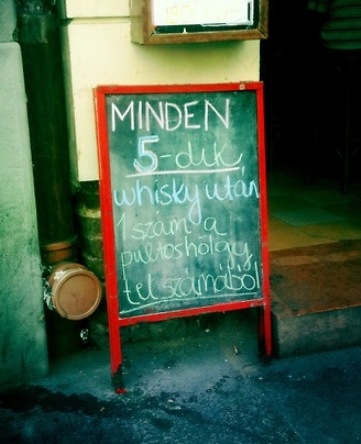 MINDEN
5-dik
whisky után
1 szám a
pultoshölgy
tel.számából